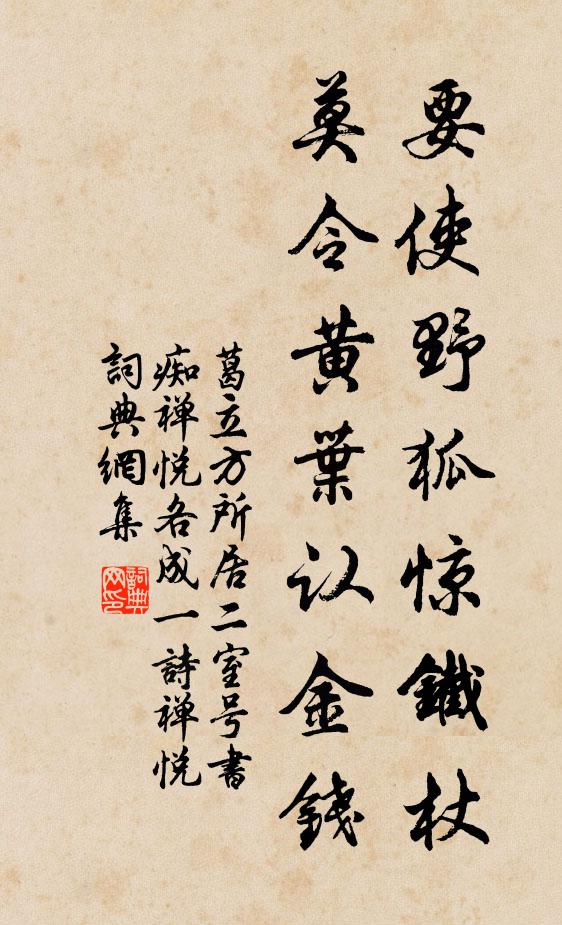 要使野狐惊鐵杖
莫令黄葉认金錢
葛立方所居二室号書
痴禅悦各成一詩禅悦
詞典網集
詞典
网印